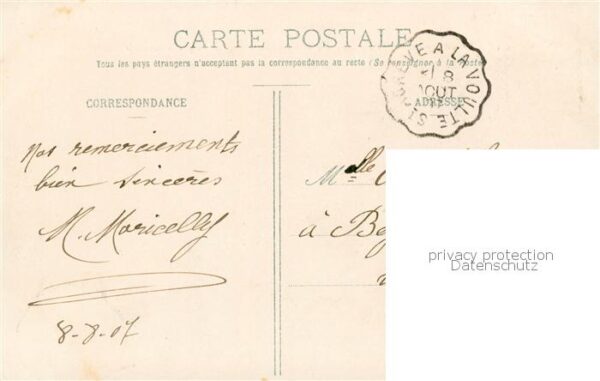 CARTE POSTALE
Tous les pays étrangers n'acceptent pas la correspondance au recto (Se renseigner à la Poste)
CORRESPONDANCE
ADRESSE
A LA VOULTE
8
AOUT
Nos remerciements
bien sincères
M. Moricelly
8-8-07
Mlle
à
privacy protection
Datenschutz